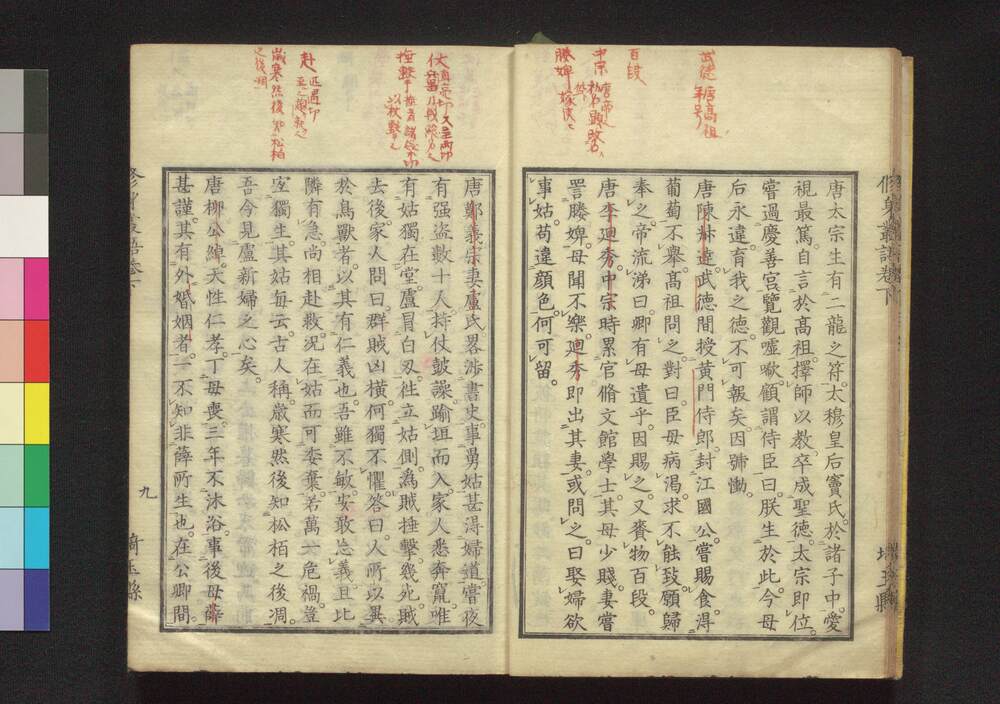 武德 唐高祖年号
百段
中宗 唐帝
媵婢
唐太宗生有二龍之符。太穆皇后竇氏於諸子中。愛
視最篤。自言於高祖。擇師以教。卒成聖德。太宗即位。
嘗過慶善宮。覽觀噓欷。顧謂侍臣曰。朕生於此。今母
后永違。育我之德。不可報矣。因號慟。
唐陳叔達武德間。授黃門侍郎。封江國公。嘗賜食。得
葡萄不舉。高祖問之。對曰。臣母病渴。求不能致。願歸
奉之。帝流涕曰。卿有母遺乎。因賜之。又賚物百段。
唐李迥秀中宗時。累官脩文館學士。其母少賤。妻嘗
詈媵婢。母聞不樂。迥秀即出其妻。或問之。曰。娶婦欲
事姑。苟違顏色。何可留。
修身叢語卷下
埼玉縣
仗
捶擊
赴
歲寒然後知松柏
之後凋
唐鄭義宗妻盧氏。畧涉書史。事舅姑甚得婦道。嘗夜
有强盜數十人。持仗鼓譟。踰垣而入。家人悉奔竄。唯
有姑獨在堂。盧冒白刃。徃立姑側。爲賊捶擊幾死。賊
去後。家人問曰。群賊凶橫。何獨不懼。答曰。人所以異
於鳥獸者。以其有仁義也。吾雖不敏。安敢忘義。且比
隣有急。尚相赴救。况在姑而可委棄。若萬一危禍。豈
宜獨生。其姑每云。古人稱。歲寒然後知松栢之後凋。
吾今見盧新婦之心矣。
唐柳公綽。天性仁孝。丁母喪。三年不沐浴。事後母薛
甚謹。其有外婚姻者。一不知非薛所生也。在公卿間。
修身叢語卷下
九
埼玉縣